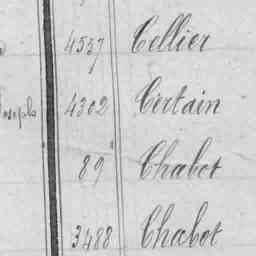 4537 Cellier
Joseph 4302 Certain
89 Chabet
3488 Chabot